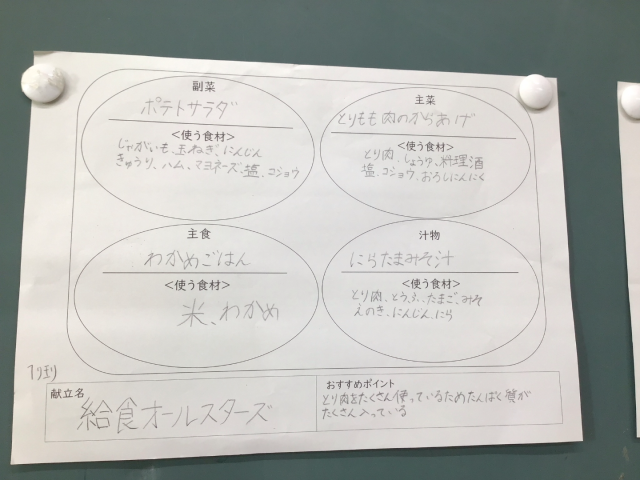 副菜
ポテトサラダ
<使う食材>
じゃがいも、玉ねぎ、にんじん
きゅうり、ハム、マヨネーズ、塩、コショウ
主菜
とりもも肉のからあげ
<使う食材>
とり肉、しょうゆ、料理酒
塩、コショウ、おろしにんにく
主食
わかめごはん
<使う食材>
米、わかめ
汁物
にらたまみそ汁
<使う食材>
とり肉、とうふ、たまご、みそ
えのき、にんじん、にら
献立名
給食オールスターズ
おすすめポイント
とり肉をたくさん使っているためたんぱく質が
たくさん入っている